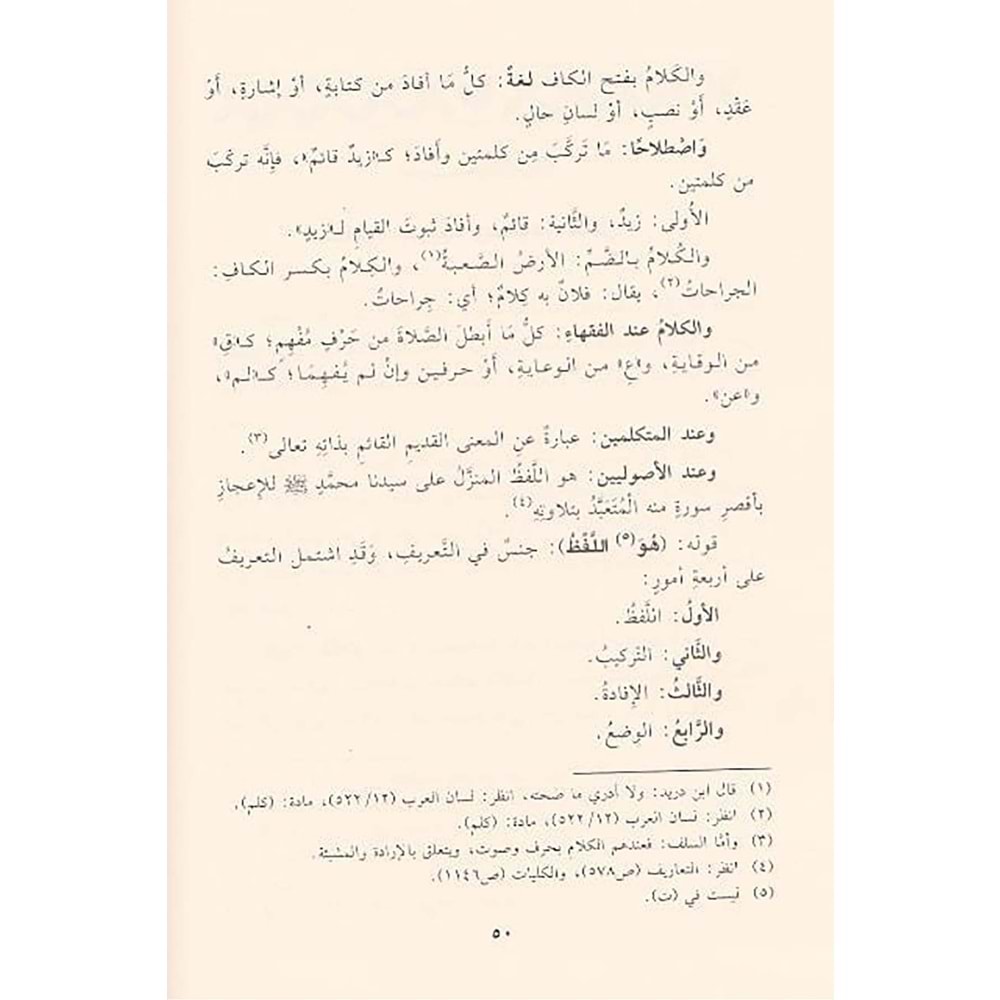 والكَلامُ بفتح الكاف لغةً: كلُّ مَا أفادَ من كتابةٍ، أوْ إشارةٍ، أَوْ
عَقْدٍ، أَوْ نصبٍ، أوْ لسانِ حالٍ.
وَاصْطلاحًا: مَا تَركَّبَ مِن كلمتين وأَفادَ؛ كـ«زيدٌ قائمٌ»، فإِنَّه تركّبَ
من كلمتين.
الأُولى: زيدٌ، والثَّانية: قائمٌ، وأفادَ ثبوتَ القيامِ لـ«زيدٍ».
والكُلامُ بـالضَّـمِّ: الأرضُ الصَّعبةُ(١)، والكِلامُ بكسر الكافِ:
الجراحاتُ(٢)، يقال: فلانٌ به كِلامٌ؛ أي: جِراحاتٌ.
والكلامُ عند الفقهاءِ: كلُّ مَا أَبطلَ الصَّلاةَ من حَرْفٍ مُفْهِمٍ؛ كـ«قِ»
من الوقايةِ، و«عِ» من الوعايةِ، أَوْ حرفين وإنْ لم يُفهِمَا؛ كـ«لم»،
و«عن».
وعند المتكلمين: عبارةٌ عنِ المعنى القديمِ القائمِ بذاتِهِ تعالى(٣).
وعند الأصوليين: هو اللَّفظُ المنزَّلُ على سيدنا محمَّدٍ ﷺ للإعجازِ
بأقصرِ سورةٍ منه الْمُتَعَبَّدُ بتلاوتِهِ(٤).
قوله: (هُوَ(٥) اللَّفْظُ): جنسٌ في التَّعريفِ، وَقَدِ اشتمل التعريفُ
على أربعةِ أمورٍ:
الأولُ: اللَّفظُ.
والثَّاني: التركيبُ.
والثَّالثُ: الإفادةُ.
والرَّابعُ: الوضعُ.
(١) قال ابن دريد: ولا أدري ما صحته، انظر: لسان العرب (٥٢٢/١٢)، مادة: (كلم).
(٢) انظر: لسان العرب (٥٢٢/١٢)، مادة: (كلم).
(٣) وأمّا السلف: فعندهم الكلام بحرف وصوت، ويتعلق بالإرادة والمشيئة.
(٤) انظر: التعاريف (ص٥٧٨)، والكليات (ص١١٤٦).
(٥) ليست في (ت).
٥٠